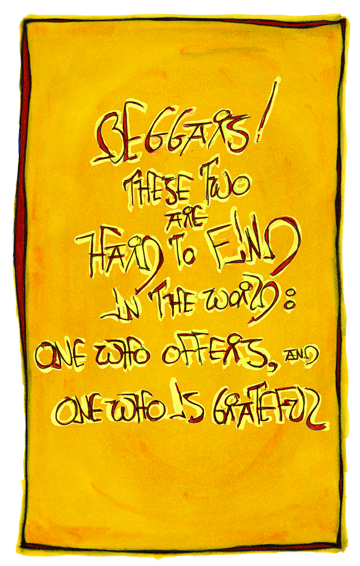 BEGGARS!
THESE TWO
ARE
HARD TO FIND
IN THE WORLD:
ONE WHO OFFERS, AND
ONE WHO IS GRATEFUL